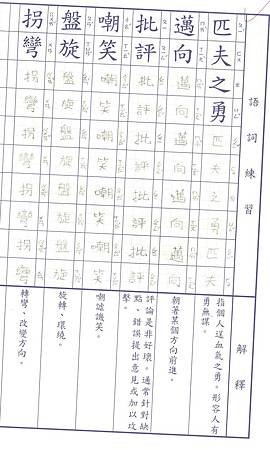 語詞練習 解釋
匹夫之勇 匹夫之勇匹夫之勇
指個人逞血氣之勇。形容人有
勇無謀。
邁向 邁向邁向邁向邁向邁向
朝著某個方向前進。
批評 批評批評批評批評批評
評論是非好壞。通常針對缺
點、錯誤提出意見或加以攻
擊。
嘲笑 嘲笑嘲笑嘲笑嘲笑嘲笑
嘲謔譏笑。
盤旋 盤旋盤旋盤旋盤旋盤旋
旋轉、環繞。
拐彎 拐彎拐彎拐彎拐彎拐彎
轉彎、改變方向。